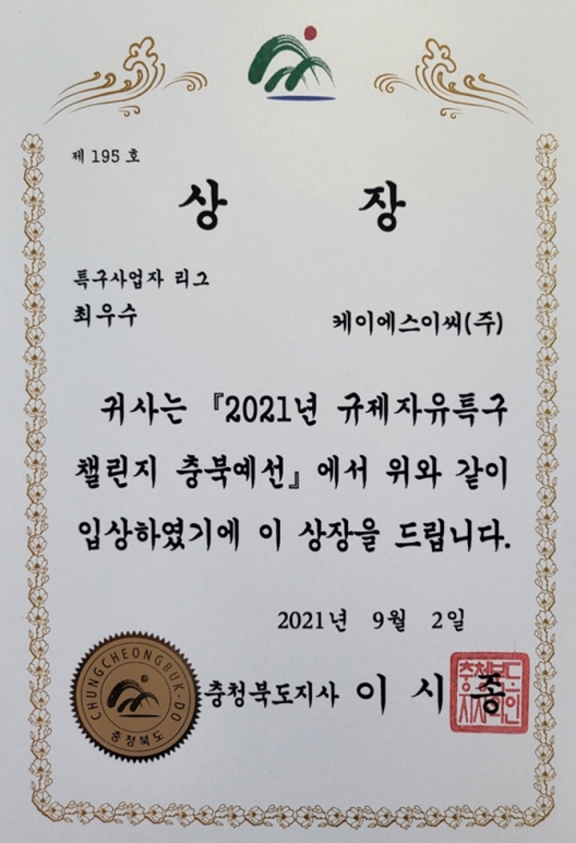 제 195 호
상 장
특구사업자 리그
최우수
케이에스이씨(주)
귀사는 『2021년 규제자유특구
챌린지 충북예선』에서 위와 같이
입상하였기에 이 상장을 드립니다.
2021년 9월 2일
충청북도지사 이 시 종
CHUNGCHEONGBUK-DO
충청북도
충청북도
지사의인